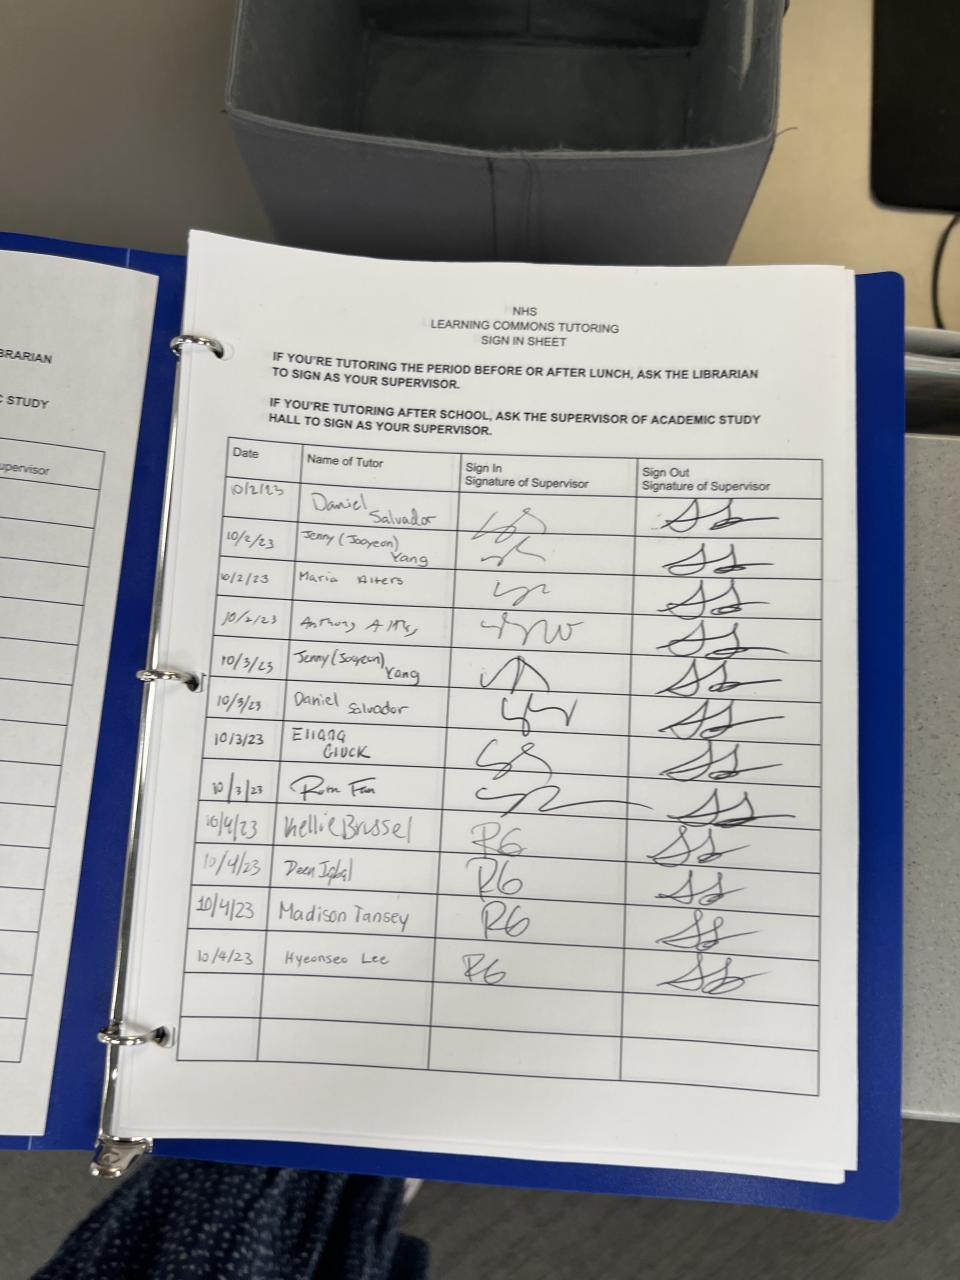 BRARIAN
C STUDY
upervisor
NHS
LEARNING COMMONS TUTORING
SIGN IN SHEET
IF YOU'RE TUTORING THE PERIOD BEFORE OR AFTER LUNCH, ASK THE LIBRARIAN
TO SIGN AS YOUR SUPERVISOR.
IF YOU'RE TUTORING AFTER SCHOOL, ASK THE SUPERVISOR OF ACADEMIC STUDY
HALL TO SIGN AS YOUR SUPERVISOR.
Date Name of Tutor Sign In Sign Out
Signature of Supervisor Signature of Supervisor
10/2/23 Daniel
Salvador
10/2/23 Jenny (Jooyeon)
Yang
10/2/23 Maria
10/2/23 Anthony
10/3/23 Jenny (Jooyeon)
Yang
10/3/23 Daniel Salvador
10/3/23 Eliana
Gluck
10/3/23 Fan
10/4/23 Kellie Brussel RG
10/4/23 Deen Iqbal RG
10/4/23 Madison Tansey RG
10/4/23 Hyeonseo Lee RG